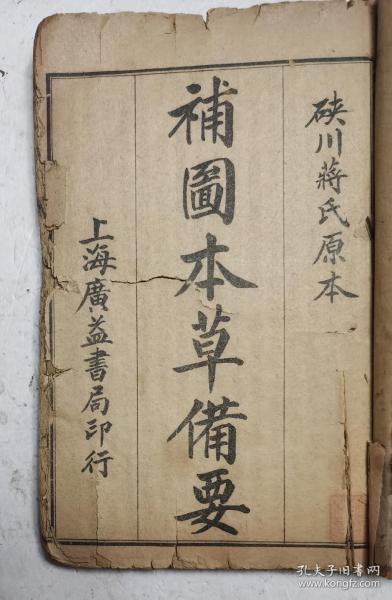 硤川蔣氏原本
補圖本草備要
上海廣益書局印行
孔夫子旧书网
www.kongfz.com